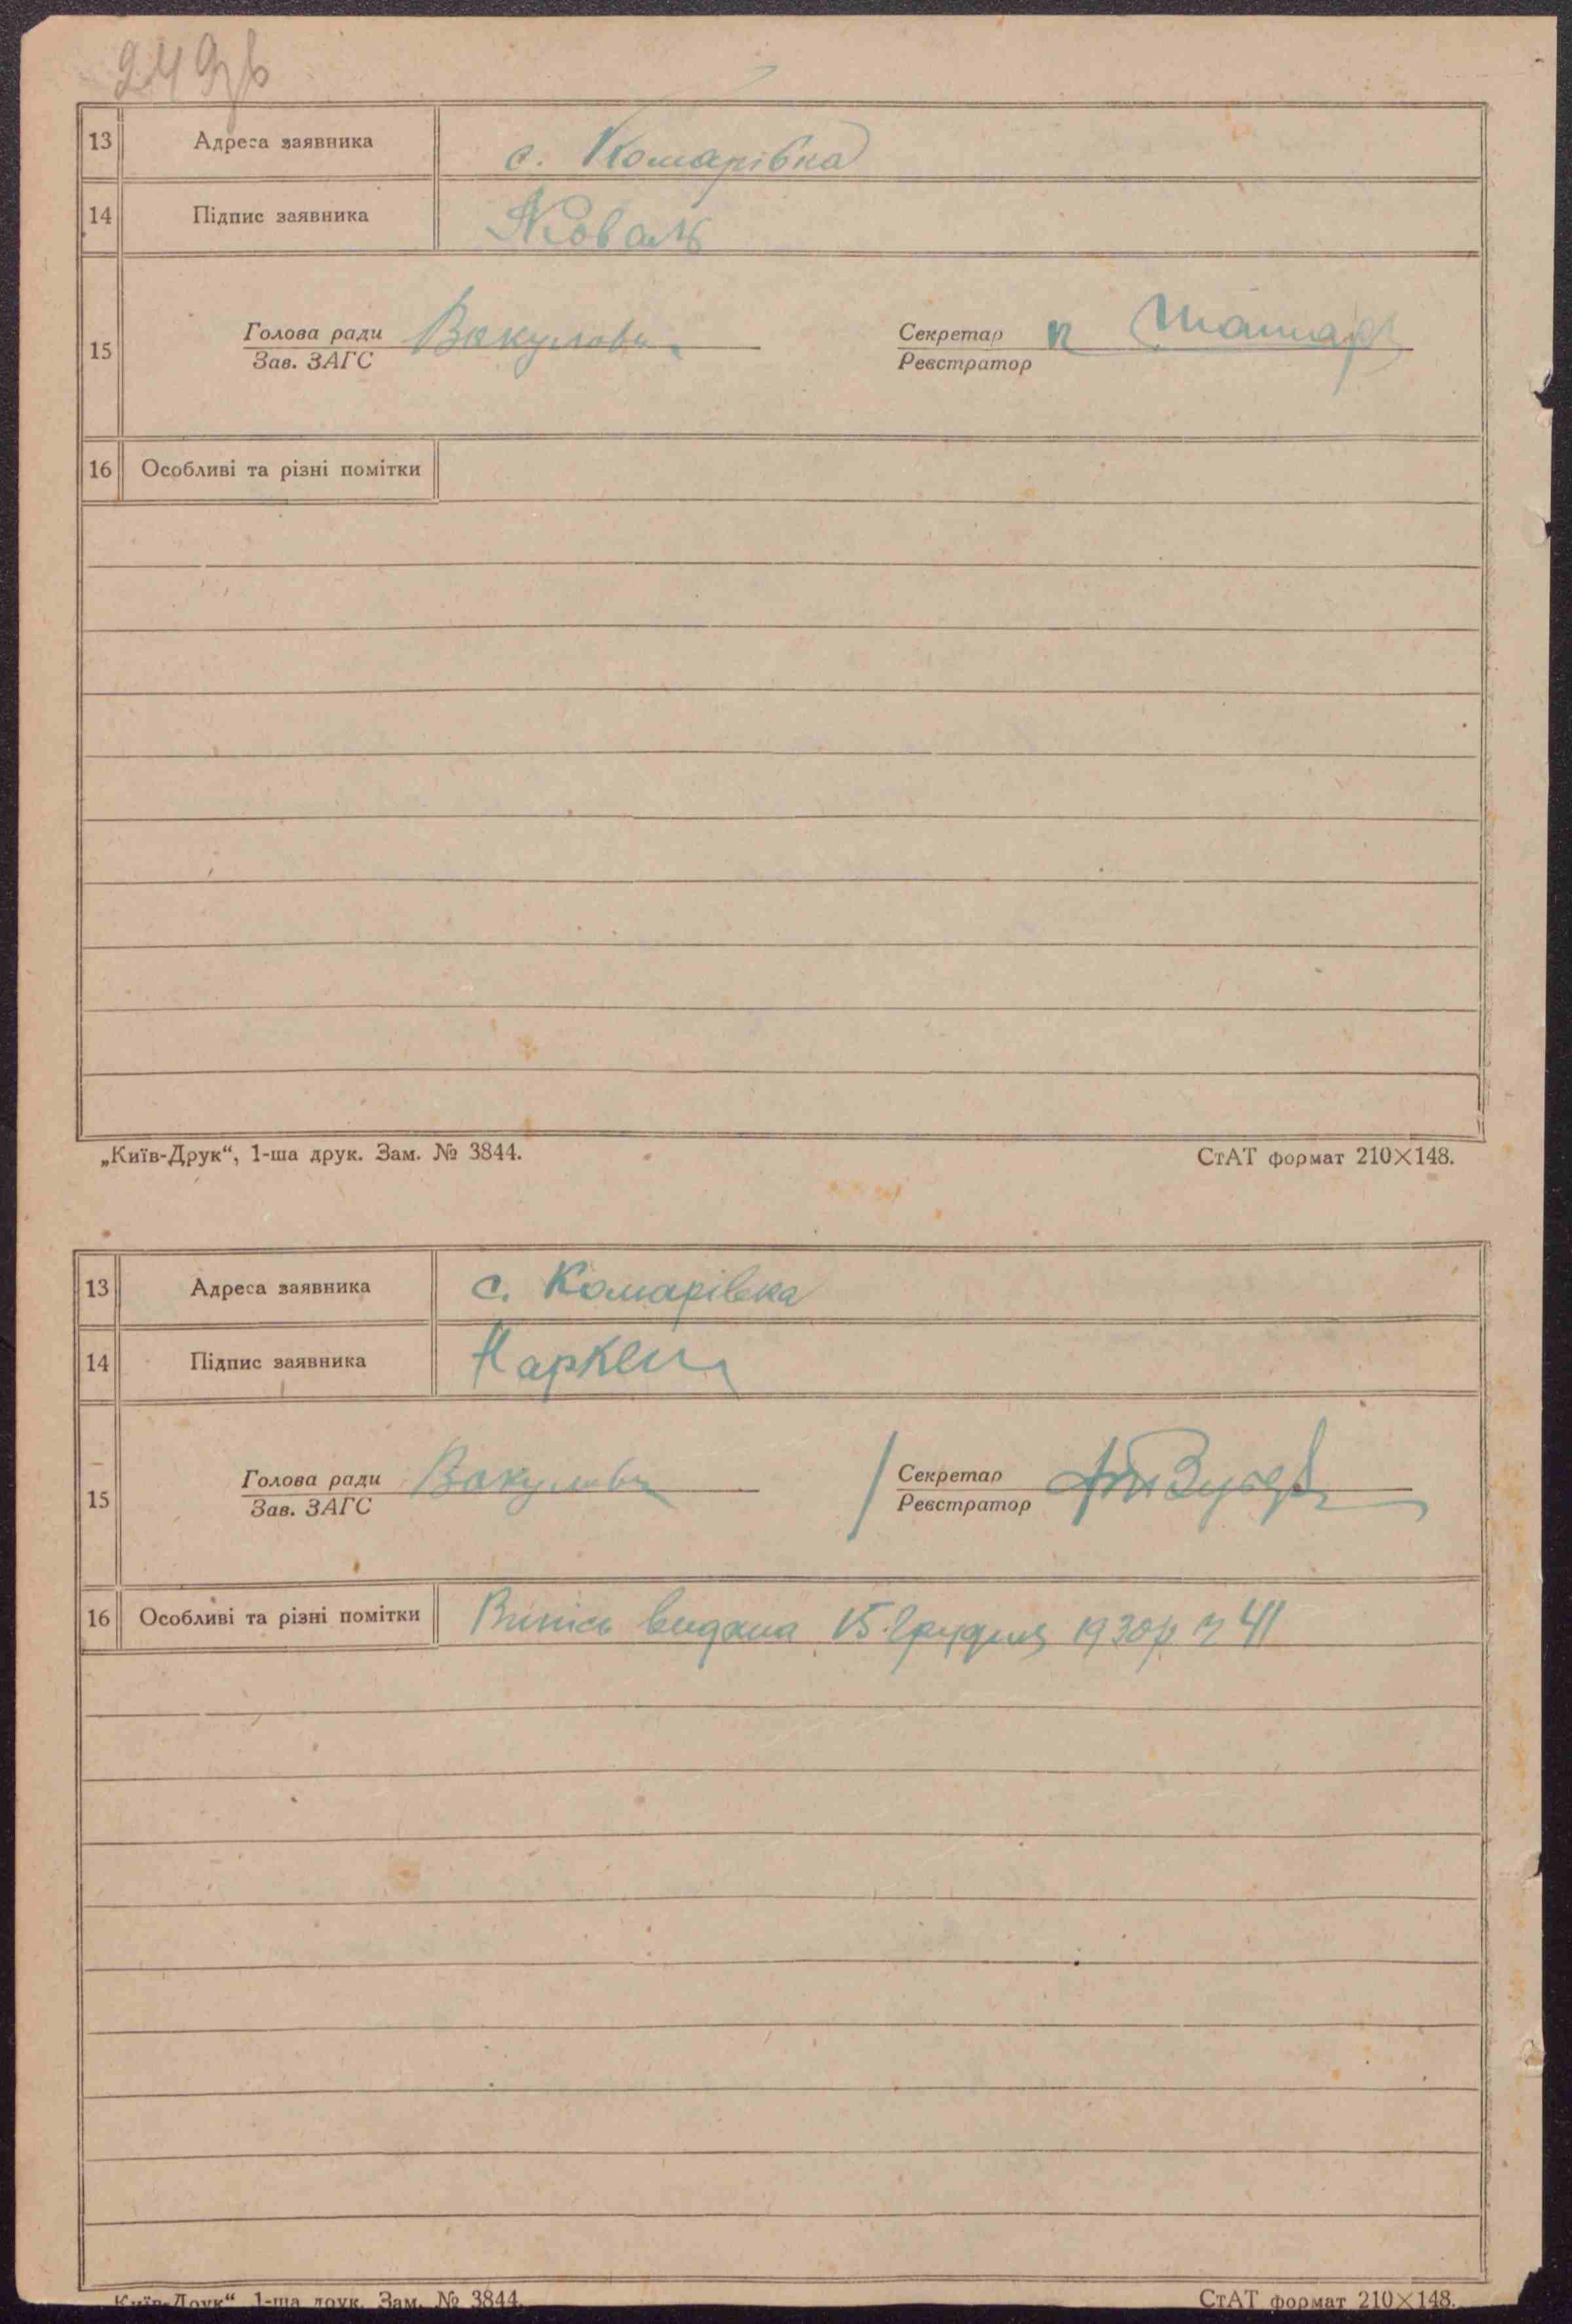 13 Адреса заявника с. Комарівка
14 Підпис заявника Коваль
Голова ради Вакулови Секретар
15
Зав. ЗАГС Реєстратор
16 Особливі та різні помітки
„Київ-Друк“, 1-ша друк. Зам. № 3844. СтАТ формат 210×148.
13 Адреса заявника с. Комарівка
14 Підпис заявника
Голова ради Секретар
15
Зав. ЗАГС Реєстратор
16 Особливі та різні помітки Випись видана 15 грудня 1930р 41
„Київ-Друк“ 1-ша друк. Зам. № 3844. СтАТ формат 210×148.